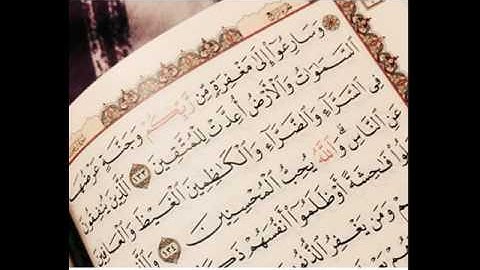 وَسَارِعُوٓا۟ إِلَىٰ مَغْفِرَةٍ مِّن رَّبِّكُمْ وَجَنَّةٍ عَرْضُهَا
ٱلسَّمَٰوَٰتُ وَٱلْأَرْضُ أُعِدَّتْ لِلْمُتَّقِينَ ١٣٣ ٱلَّذِينَ يُنفِقُونَ
فِى ٱلسَّرَّآءِ وَٱلضَّرَّآءِ وَٱلْكَٰظِمِينَ ٱلْغَيْظَ وَٱلْعَافِينَ
عَنِ ٱلنَّاسِ وَٱللَّهُ يُحِبُّ ٱلْمُحْسِنِينَ ١٣٤
فَٰحِشَةً أَوْ ظَلَمُوٓا۟ أَنفُسَهُمْ
وَمَن يَغْفِرُ